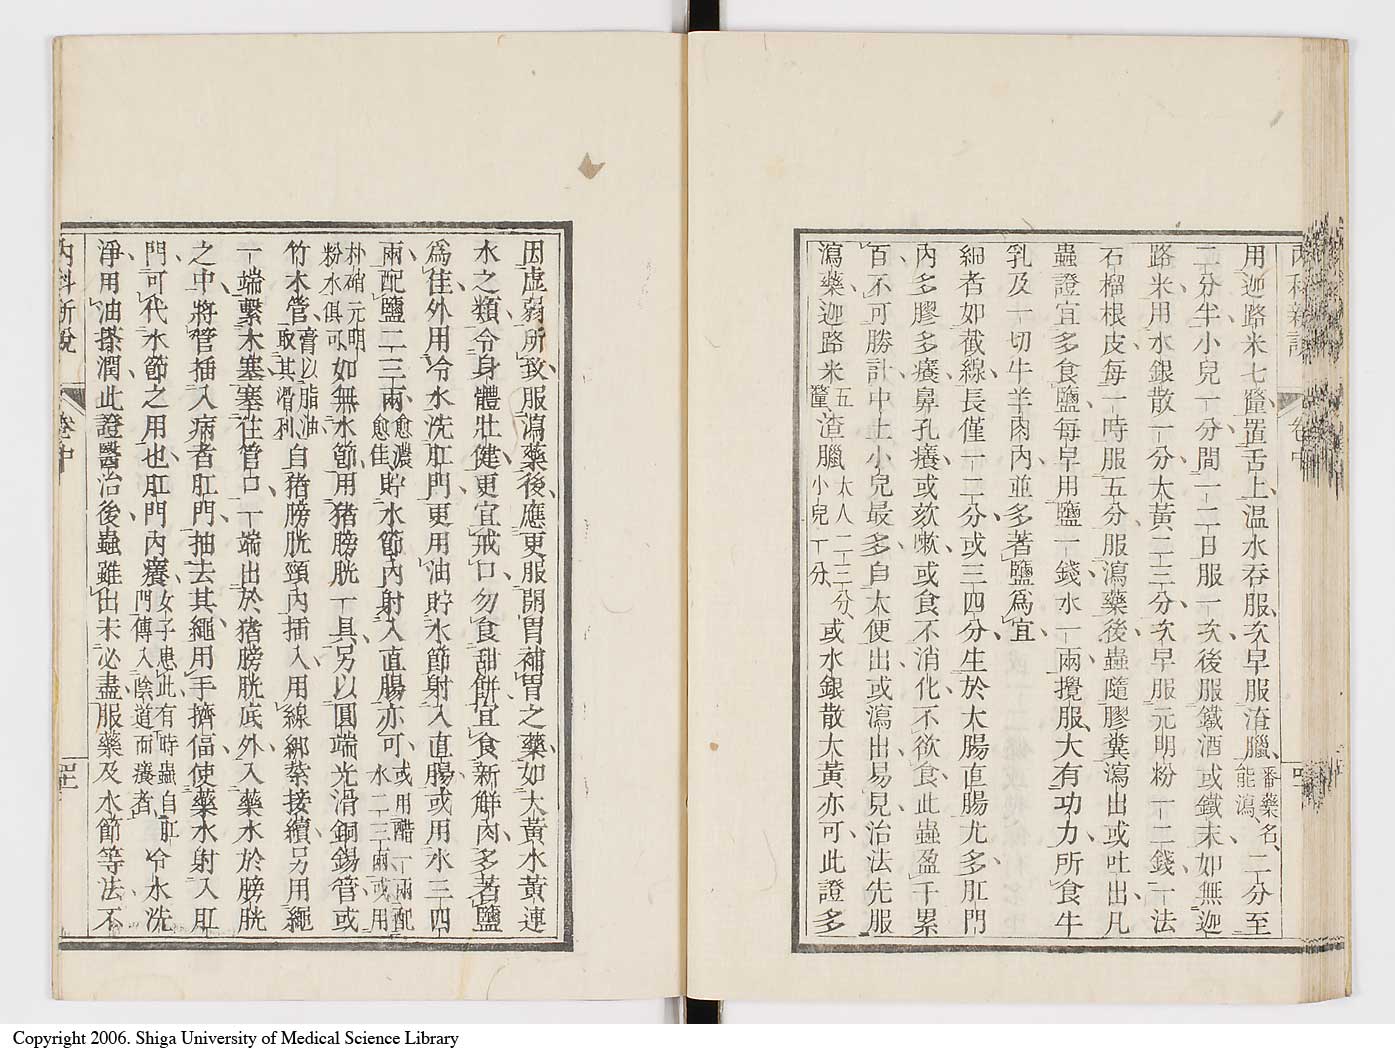 內科新說
卷中
用迦路米七釐置舌上溫水吞服次早服渣臘番藥名能瀉二分至
二分半小兒一分間一二日服一次後服鐵酒或鐵末如無迦
路米用水銀散一分大黃二三分次早服元明粉一二錢一法
石榴根皮每一時服五分服瀉藥後蟲隨膠糞瀉出或吐出凡
蟲證宜多食鹽每早用鹽一錢水一兩攪服大有功力所食牛
乳及一切牛羊肉內並多著鹽為宜
細者如截線長僅一二分或三四分生於大腸直腸尤多肛門
內多膠多癢鼻孔癢或欬嗽或食不消化不欲食此蟲盈千累
百不可勝計中土小兒最多自大便出或瀉出易見治法先服
瀉藥迦路米五釐渣臘大人二三分小兒一分或水銀散大黃亦可此證多
因虛弱所致服瀉藥後應更服開胃補胃之藥如大黃水黃連
水之類令身體壯健更宜戒口勿食甜餅宜食新鮮肉多著鹽
為佳外用冷水洗肛門更用油貯水節射入直腸或用水三四
兩配鹽二三兩愈濃愈佳貯水節內射入直腸亦可或用醋一兩配水二三兩或用
朴硝元明粉水俱可如無水節用猪膀胱一具另以圓端光滑銅錫管或
竹木管膏以脂油取其滑利自猪膀胱頸內插入用線綁紮接續另用繩
一端繫木塞塞住管口一端出於猪膀胱底外入藥水於膀胱
之中將管插入病者肛門抽去其繩用手擠偪使藥水射入肛
門可代水節之用也肛門內癢女子患此有時蟲自肛門傳入陰道而癢者冷水洗
淨用油搽潤此證醫治後蟲雖出未必盡服藥及水節等法不
內科新說
卷中
Copyright 2006. Shiga University of Medical Science Library